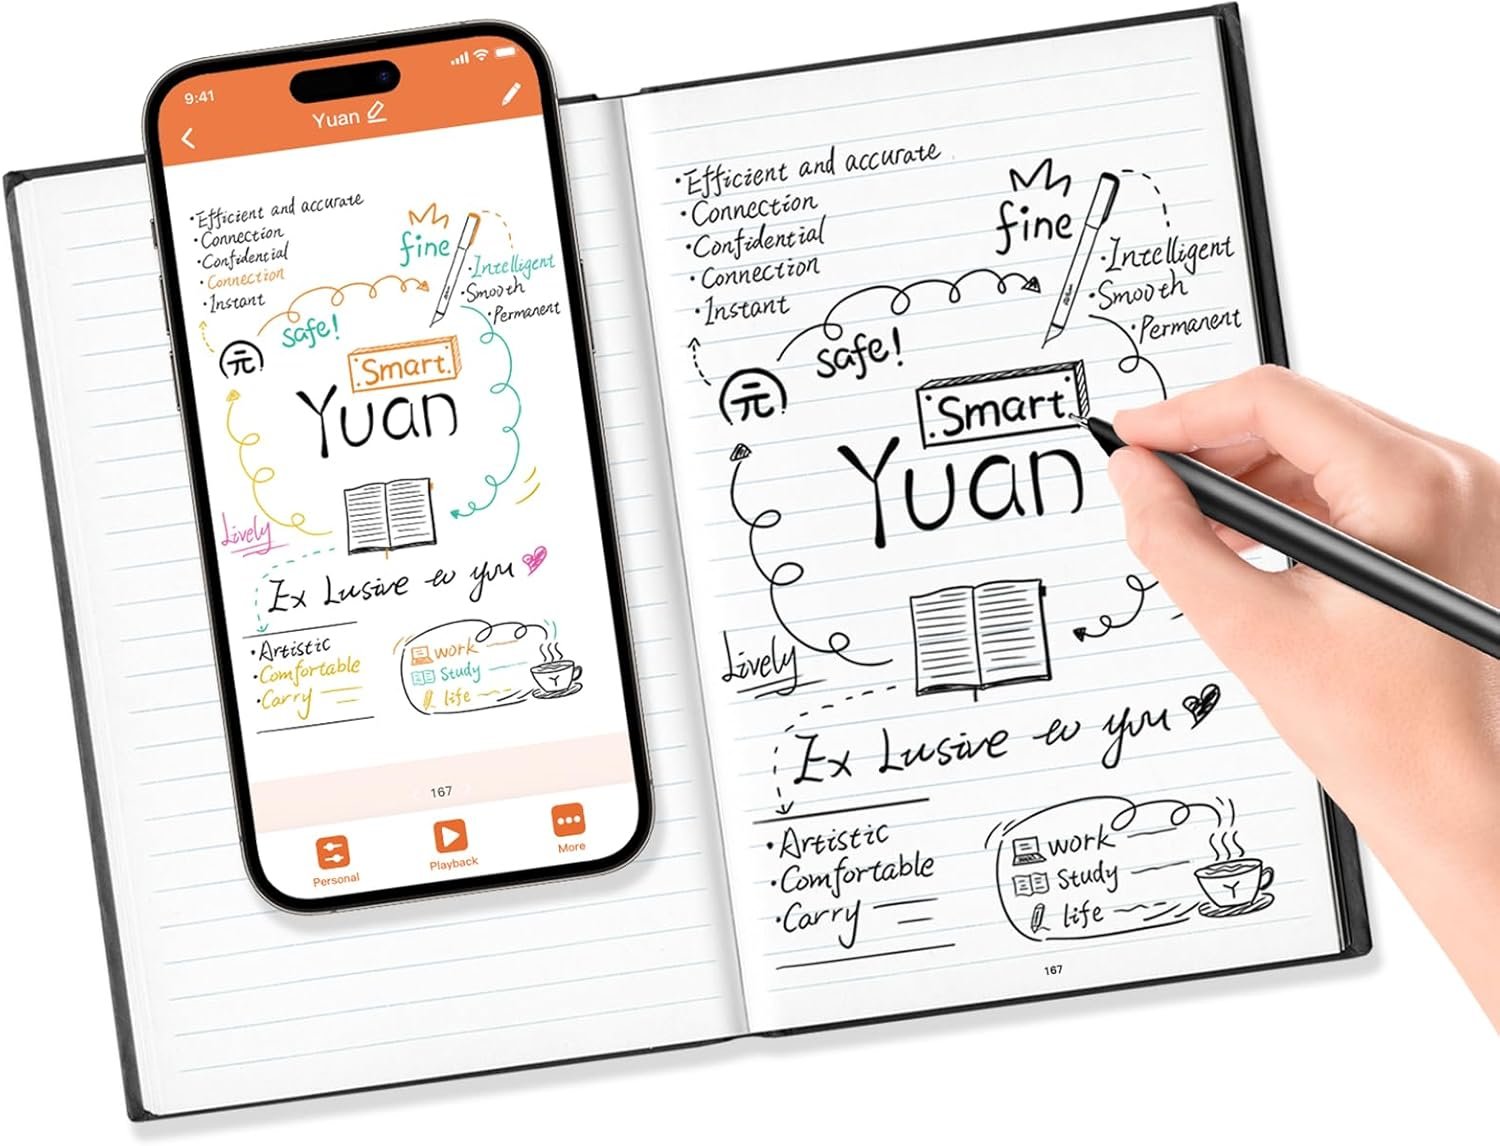 9:41
Yuan
•Efficient and accurate
•Connection
•Confidential
•Connection
•Instant
fine
•Intelligent
•Smooth
•Permanent
safe!
元
Smart
Yuan
Lively
Ex Lusive to you
•Artistic
•Comfortable
•Carry
work
Study
life
Y
167
Personal
Playback
More
•Efficient and accurate
•Connection
•Confidential
•Connection
•Instant
fine
•Intelligent
•Smooth
•Permanent
safe!
元
Smart
Yuan
Lively
Ex Lusive to you
•Artistic
•Comfortable
•Carry
work
Study
life
Y
167